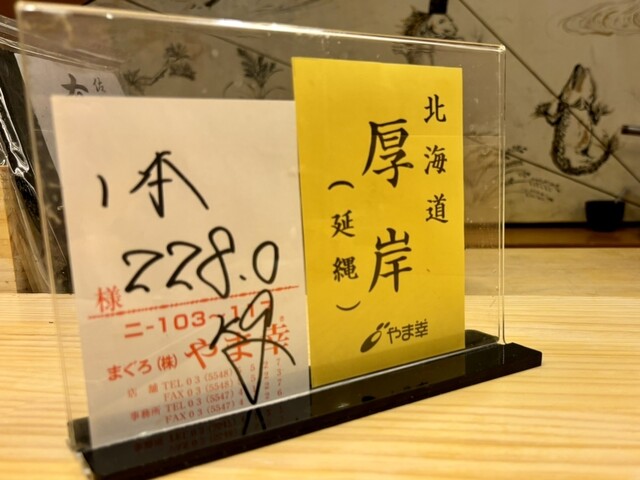 北海道
厚岸
（延縄）
やま幸
1本
228.0
様
二-103~11
まぐろ（株）やま幸
店舗 TEL 03 (5548)
FAX 03 (5548)
事務所 TEL 03 (5547)
FAX 03 (5547)
佐